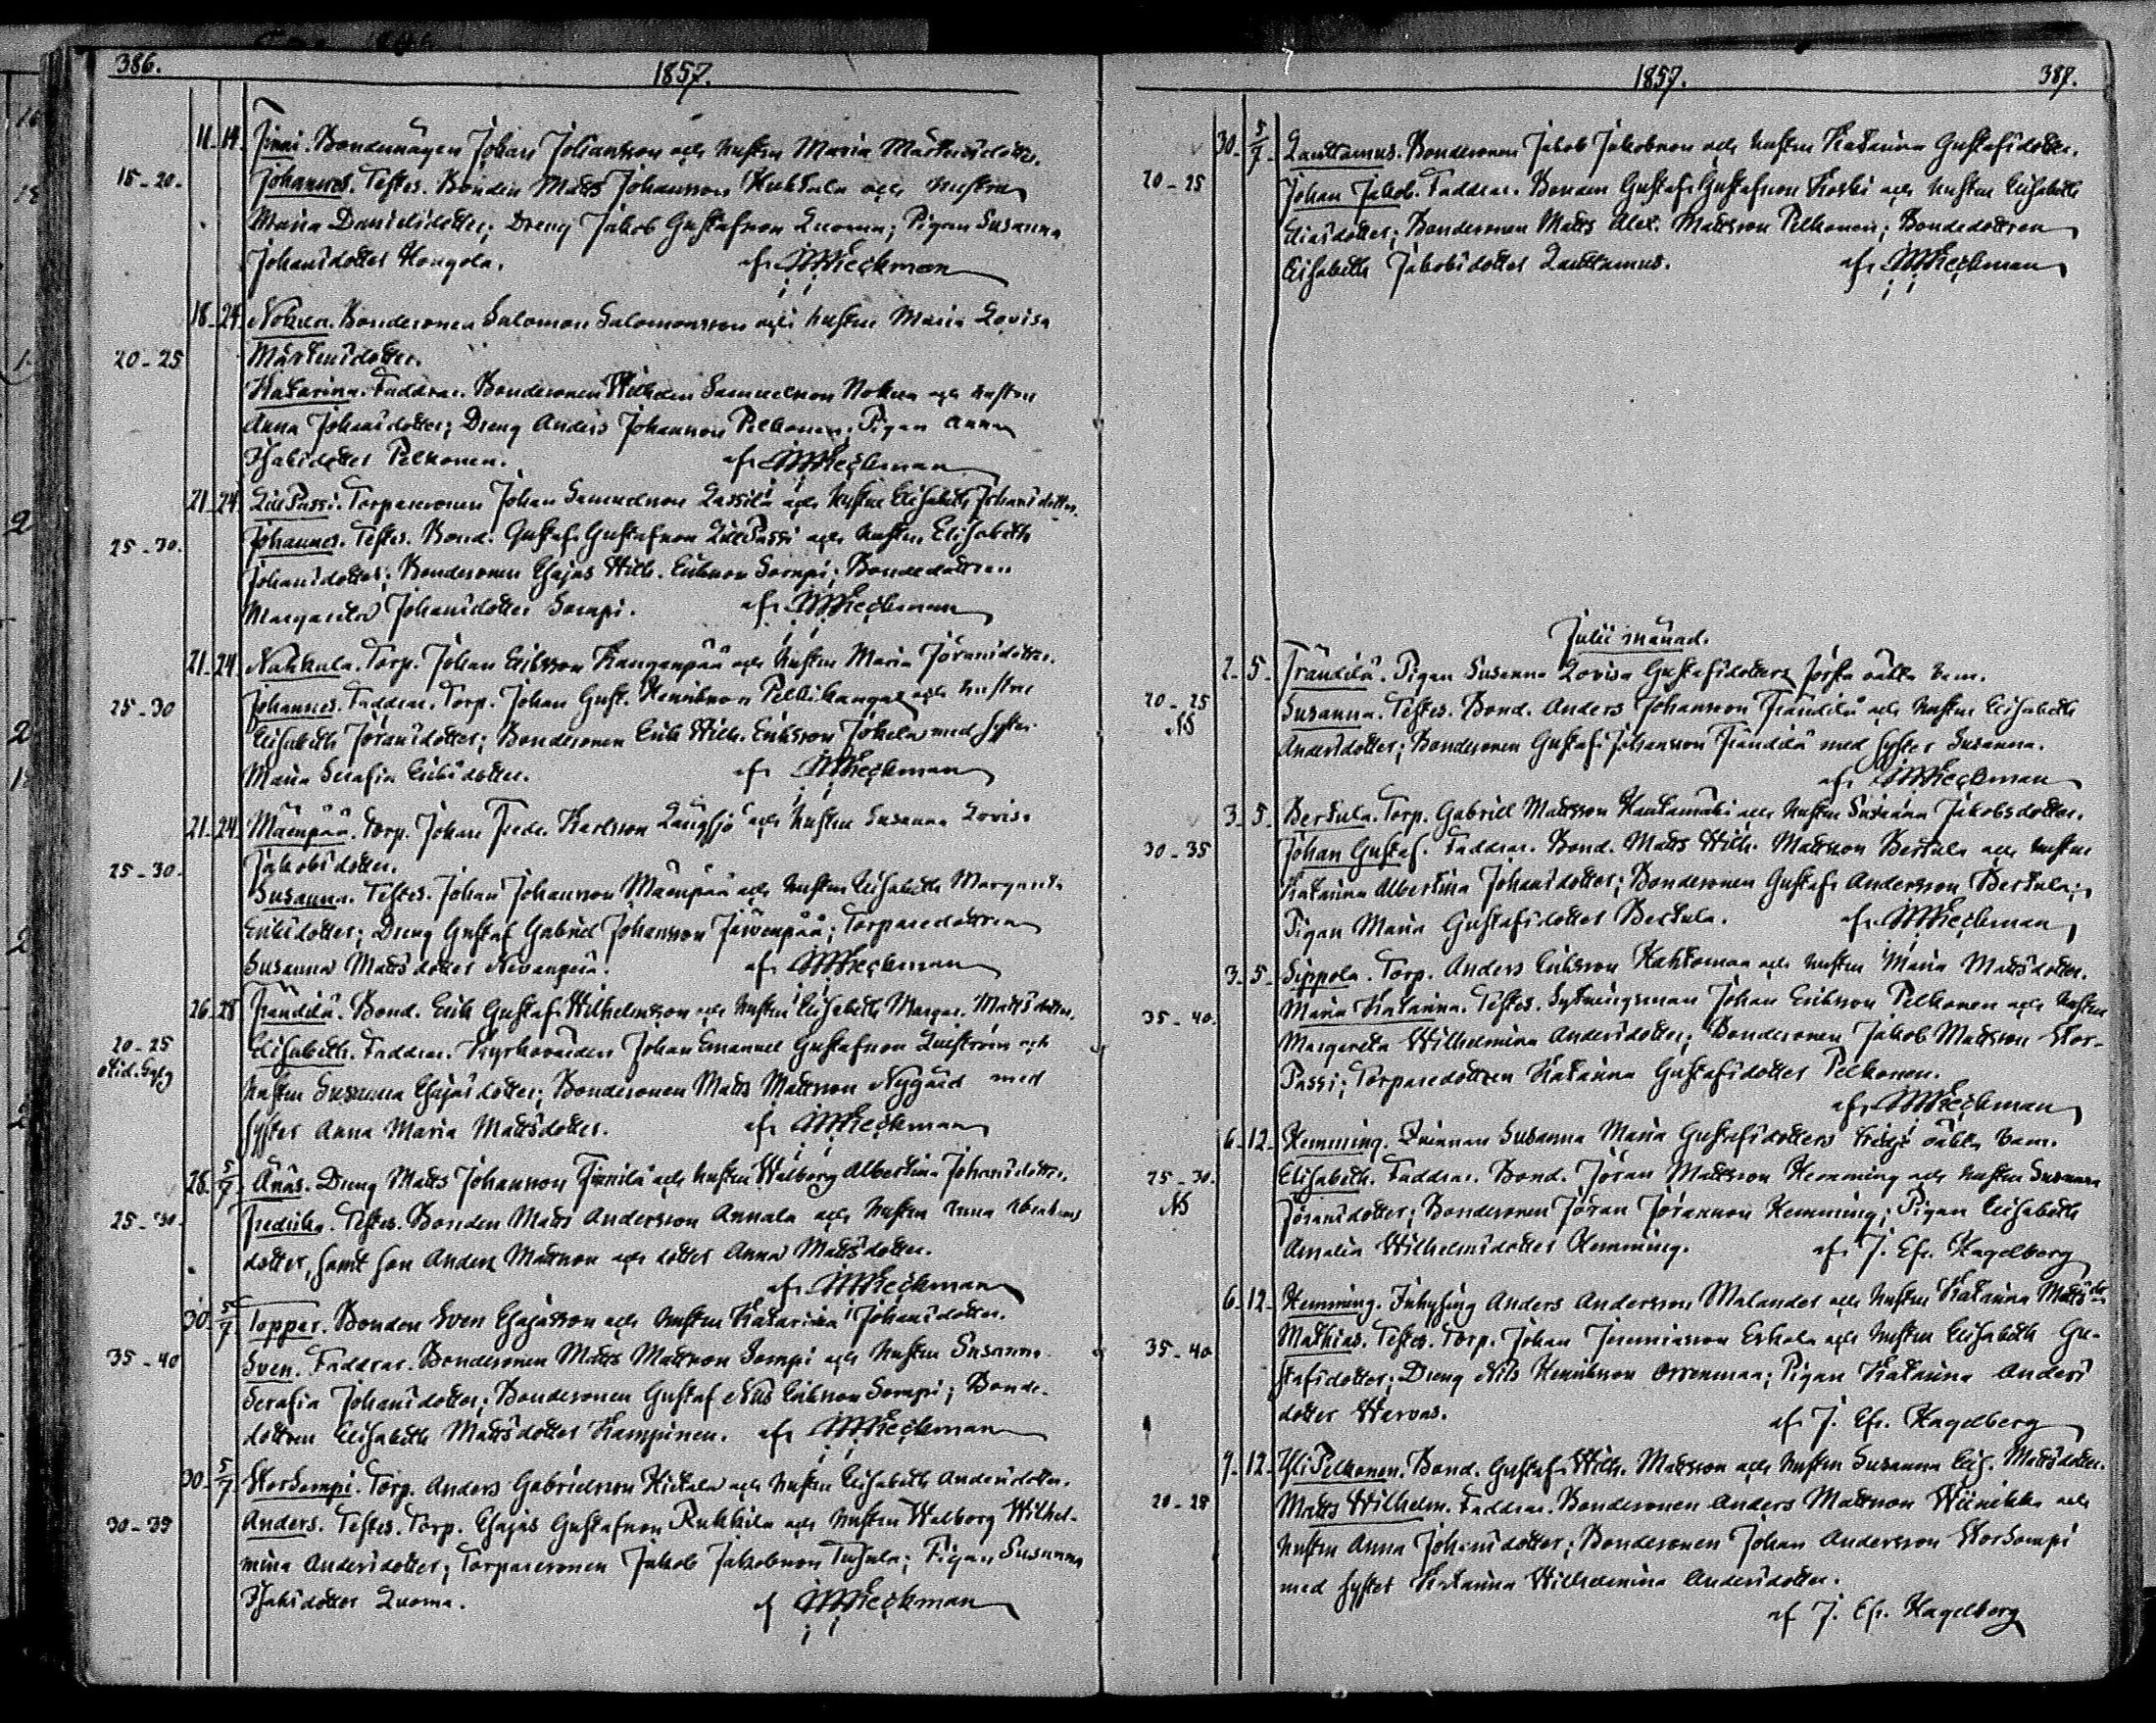 386.
1857.
11-14. Finni. Bondemågen Johan Johansson och hustru Maria Mårtensdotter.
15-20. Johannes. Testes. Bonden Matts Johansson Huhtala och hustru
Maria Danielsdotter; Dreng Jakob Gustafsson Luoma; Pigan Susanna
Johansdotter Hongola. af JMHeckman
18-24. Bondesonen Salomon Salomonsson och hustru Maria Lovisa
20-25 Mårtensdotter.
Katarina. Faddrar. Bondesonen Samuelsson och hustru
Anna Johansdotter; Dreng Anders Johansson Pelkonen; Pigan Anna
Isaksdotter Pelkonen. af JMHeckman
21-24. LillPassi. Torparesonen Johan Samuelsson Lassila och hustru Elisabeth Johansdotter.
25-30. Johannes. Testes. Bond. Gustaf Gustafsson LillPassi och hustru Elisabeth
Johansdotter; Bondesonen Esajas Wilh. Eriksson Sorupi; Bondedottren
Margareta Johansdotter Sompi. af JMHeckman
21-24. Torp. Johan Eriksson Kangaspää och hustru Maria Jöransdotter.
25-30 Johannes. Faddrar. Torp. Johan Gust. Henriksson Pellikangas och hustru
Elisabeth Jöransdotter; Bondesonen Erik Wilh. Eriksson Jokela med syster
Maria Serafia Eriksdotter. af JMHeckman
21-24. Mäenpää. Torp. Johan Fredr. Karlsson Långsjö och hustru Susanna Lovisa
25-30. Jakobsdotter.
Susanna. Testes. Johan Johansson Mäenpää och hustru Elisabeth Margareta
Eriksdotter; Dreng Gustaf Gabriel Johansson Järvenpää; Torparedottren
Susanna Mattsdotter Nevanperä. af JMHeckman
26-28 Frändilä. Bond. Erik Gustaf Wilhelmsson och hustru Elisabeth Margar. Mattsdotter.
20-25 Elisabeth. Faddrar. Kyrkovärden Johan Emanuel Gustafsson och
hustru Susanna Esajasdotter; Bondesonen Matts Mattsson Nygård med
syster Anna Maria Mattsdotter. af JMHeckman
28. 5/7 Ånäs. Dreng Matts Johansson Finnilä och hustru Walborg Albertina Johansdotter.
25-30. Fredrika. Testes. Bonden Matts Andersson Annala och hustru Anna Abrahams
dotter, samt son Anders Mattsson och dotter Anna Mattsdotter.
af JMHeckman
30. 5/7 Toppar. Bonden Sven Esajasson och hustru Katarina Johansdotter.
35-40 Sven. Faddrar. Bondesonen Matts Mattsson Sompi och hustru Susanna
Serafia Johansdotter; Bondesonen Gustaf Nils Eriksson Sompi; Bonde-
dottren Elisabeth Mattsdotter Kampinen. af JMHeckman
30. 5/7 StorSompi. Torp. Anders Gabrielsson Hietala och hustru Elisabeth Andersdotter.
30-35 Anders. Testes. Torp. Esajas Gustafsson Rukkila och hustru Walborg Wilhel-
mina Andersdotter; Torparesonen Jakob Jakobsson; Pigan Susanna
Isaksdotter Luoma. af JMHeckman
1857.
387.
30. 5/7. Lauttamus. Bondesonen Jakob Jakobsson och hustru Katarina Gustafsdotter.
20-25 Johan Jakob. Faddrar. Bonden Gustaf Gustafsson Koski och hustru Elisabeth
Eliasdotter; Bondesonen Matts Alex. Mattsson Pelkonen; Bondedottren
Elisabeth Jakobsdotter Lauttamus. af JMHeckman
Julii månad.
2-5. Frändilä. Pigan Susanna Lovisa Gustafsdotters första oäkta barn.
20-25 Susanna. Testes. Bond. Anders Johansson Frändilä och hustru Elisabeth
NB Andersdotter; Bondesonen Gustaf Johansson Frändilä med syster Susanna.
af JMHeckman
3-5. Bertula. Torp. Gabriel Mattsson Hautamäki och hustru Susanna Jakobsdotter.
30-35 Johan Gustaf. Faddrar. Bond. Matts Wilh. Mattsson Bertula och hustru
Katarina Albertina Johansdotter; Bondesonen Gustaf Andersson Bertula;
Pigan Maria Gustafsdotter Bertula. af JMHeckman
3-5. Sippola. Torp. Anders Eriksson Kahtamaa och hustru Maria Mattsdotter.
35-40. Maria Katarina. Testes. Sytningsman Johan Eriksson Pelkonen och hustru
Margareta Wilhelmina Andersdotter; Bondesonen Jakob Mattsson Stor-
Passi; Torparedottren Katarina Gustafsdotter Pelkonen.
af JMHeckman
6-12. Hemming. Qvinnan Susanna Maria Gustafsdotters tredje oäkta barn.
25-30. Elisabeth. Faddrar. Bond. Jöran Mattsson Hemming och hustru Susanna
NB Jöransdotter; Bondesonen Jöran Jöransson Hemming; Pigan Elisabeth
Amalia Wilhelmsdotter Hemming. af J. Efr. Hagelberg
6-12. Hemming. Inhysing Anders Andersson Malander och hustru Katarina Mattsdr
35-40 Mathias. Testes. Torp. Johan Jeremiasson Eskola och hustru Elisabeth Gu-
stafsdotter; Dreng Nils Henriksson Orrenmaa; Pigan Katarina Anders
dotter Warvas. af J. Efr. Hagelberg
9-12. YliPelkonen. Bond. Gustaf Wilh. Mattsson och hustru Susanna Elis. Mattsdotter.
20-25 Matts Wilhelm. Faddrar. Bondesonen Anders Mattsson Wiinikka och
hustru Anna Johansdotter; Bondesonen Johan Andersson StorSompi
med syster Katarina Wilhelmina Andersdotter.
af J. Efr. Hagelberg